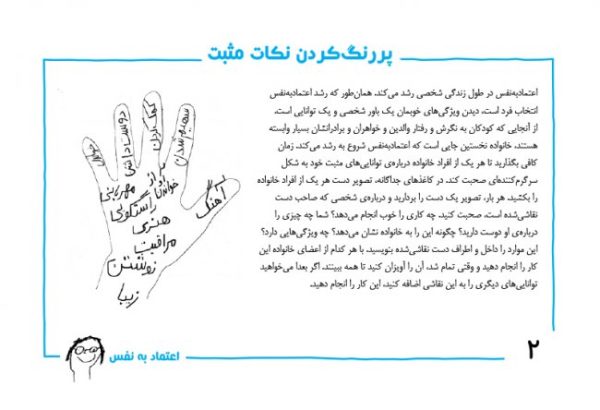 پررنگ‌کردن نکات مثبت
اعتمادبه‌نفس در طول زندگی شخصی رشد می‌کند. همان‌طور که رشد اعتمادبه‌نفس
انتخاب فرد است، دیدن ویژگی‌های خوبمان یک باور شخصی و یک توانایی است.
از آنجایی که کودکان به نگرش و رفتار والدین و خواهران و برادرانشان بسیار وابسته
هستند، خانواده نخستین جایی است که اعتمادبه‌نفس شروع به رشد می‌کند. زمان
کافی بگذارید تا هر یک از افراد خانواده درباره‌ی توانایی‌های مثبت خود به شکل
سرگرم‌کننده‌ای صحبت کند. در کاغذهای جداگانه، تصویر دست هر یک از افراد خانواده
را بکشید. هر بار، تصویر یک دست را بردارید و درباره‌ی شخصی که صاحب دست
نقاشی‌شده است، صحبت کنید. چه کاری را خوب انجام می‌دهد؟ شما چه چیزی را
درباره‌ی او دوست دارید؟ چگونه این را به خانواده نشان می‌دهد؟ چه ویژگی‌هایی دارد؟
این موارد را داخل و اطراف دست نقاشی‌شده بنویسید. با هر کدام از اعضای خانواده این
کار را انجام دهید و وقتی تمام شد، آن را آویزان کنید تا همه ببینند. اگر بعدا می‌خواهید
توانایی‌های دیگری را به این نقاشی اضافه کنید، این کار را انجام دهید.
دوست‌داشتنی
کمک‌کردن
سهیم‌شدن
مهربانی
آواز
خواندن
آهنگ
راستگویی
هنری
مراقبت
نوشتن
زیبا
اعتماد به نفس
۲